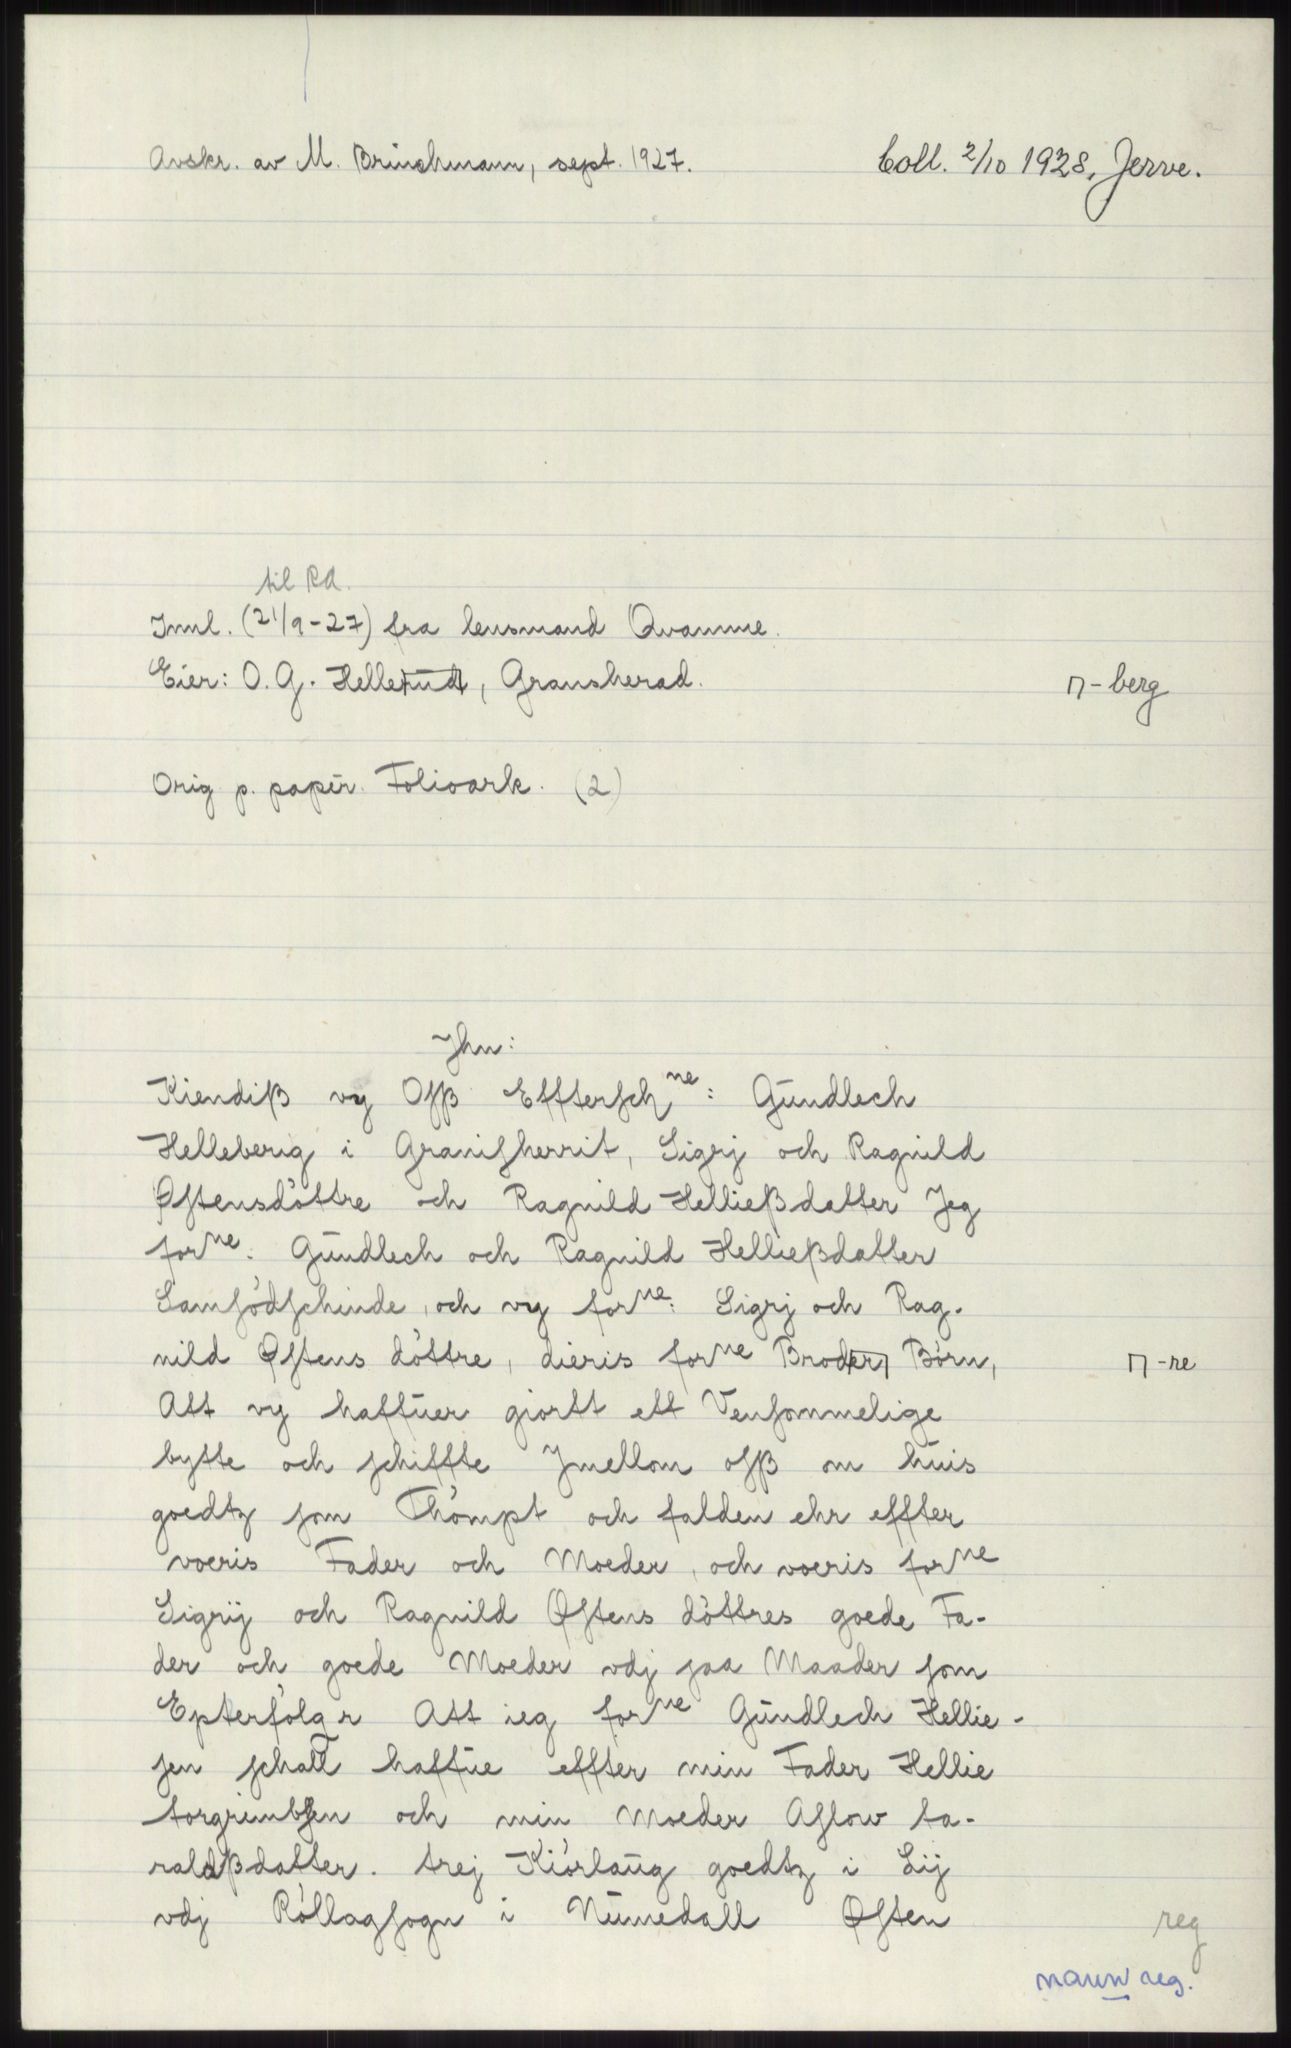 Avskr. av M. Brinchmann, sept. 1927.
Coll. 2/10 1928, Jerve.
til RA.
Innl. (21/9-27) fra lensmand Qvamme.
Eier: O. G. Hellerudt, Gransherad.
⊓-berg
Orig p. papir. Folioark. (2)
Jhn:
Kiendiß vy Oſß Effterſch ne: Gundlech
Helleberig i Graniſherrit, Sigrj och Ragnild
Øſtensdöttre och Ragnild Helließ datter Jeg
forne: Gundlech och Ragnild Helließdatter
Samſödſchinde, och vy forne: Sigrj och Rag-
nild Øſtens döttre, dieris forne Broder, Börn,
⊓-re
Att vy haffuer giortt ett Venſommelige
bytte och ſchiffte Jmellom oſß om huis
goedtz ſom Thömpt och falden ehr effter
voeris Fader och Moeder, och voeris forne
Sigrij och Ragnild Øſtens döttres goede Fa-
der och goede Moeder vdj ſaa Maader ſom
Epterfölgr Att ieg forne Gundlech Hellie-
ſen ſchall haffue effter min Fader Hellie
torgrimbſen och min Moeder Aſlow ta-
raldßdatter. trej Kiörlaug goedtz i Lij
vdj Röllagſogn i Numedall Øſten
reg
navn reg.